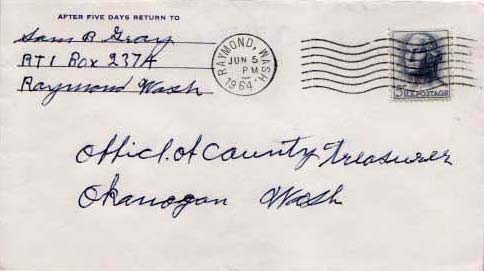 AFTER FIVE DAYS RETURN TO
Sam R Gray
RT 1 Box 237A
Raymond Wash
RAYMOND, WASH
JUN 5
PM
1964
5¢ U.S. POSTAGE
Offic. of County Treasurer
Okanogan Wash